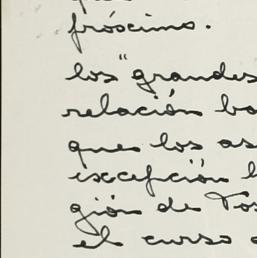 próscimo.
los "grandes
relación ba
ques los as
excepción l
gión de Tos
el curso